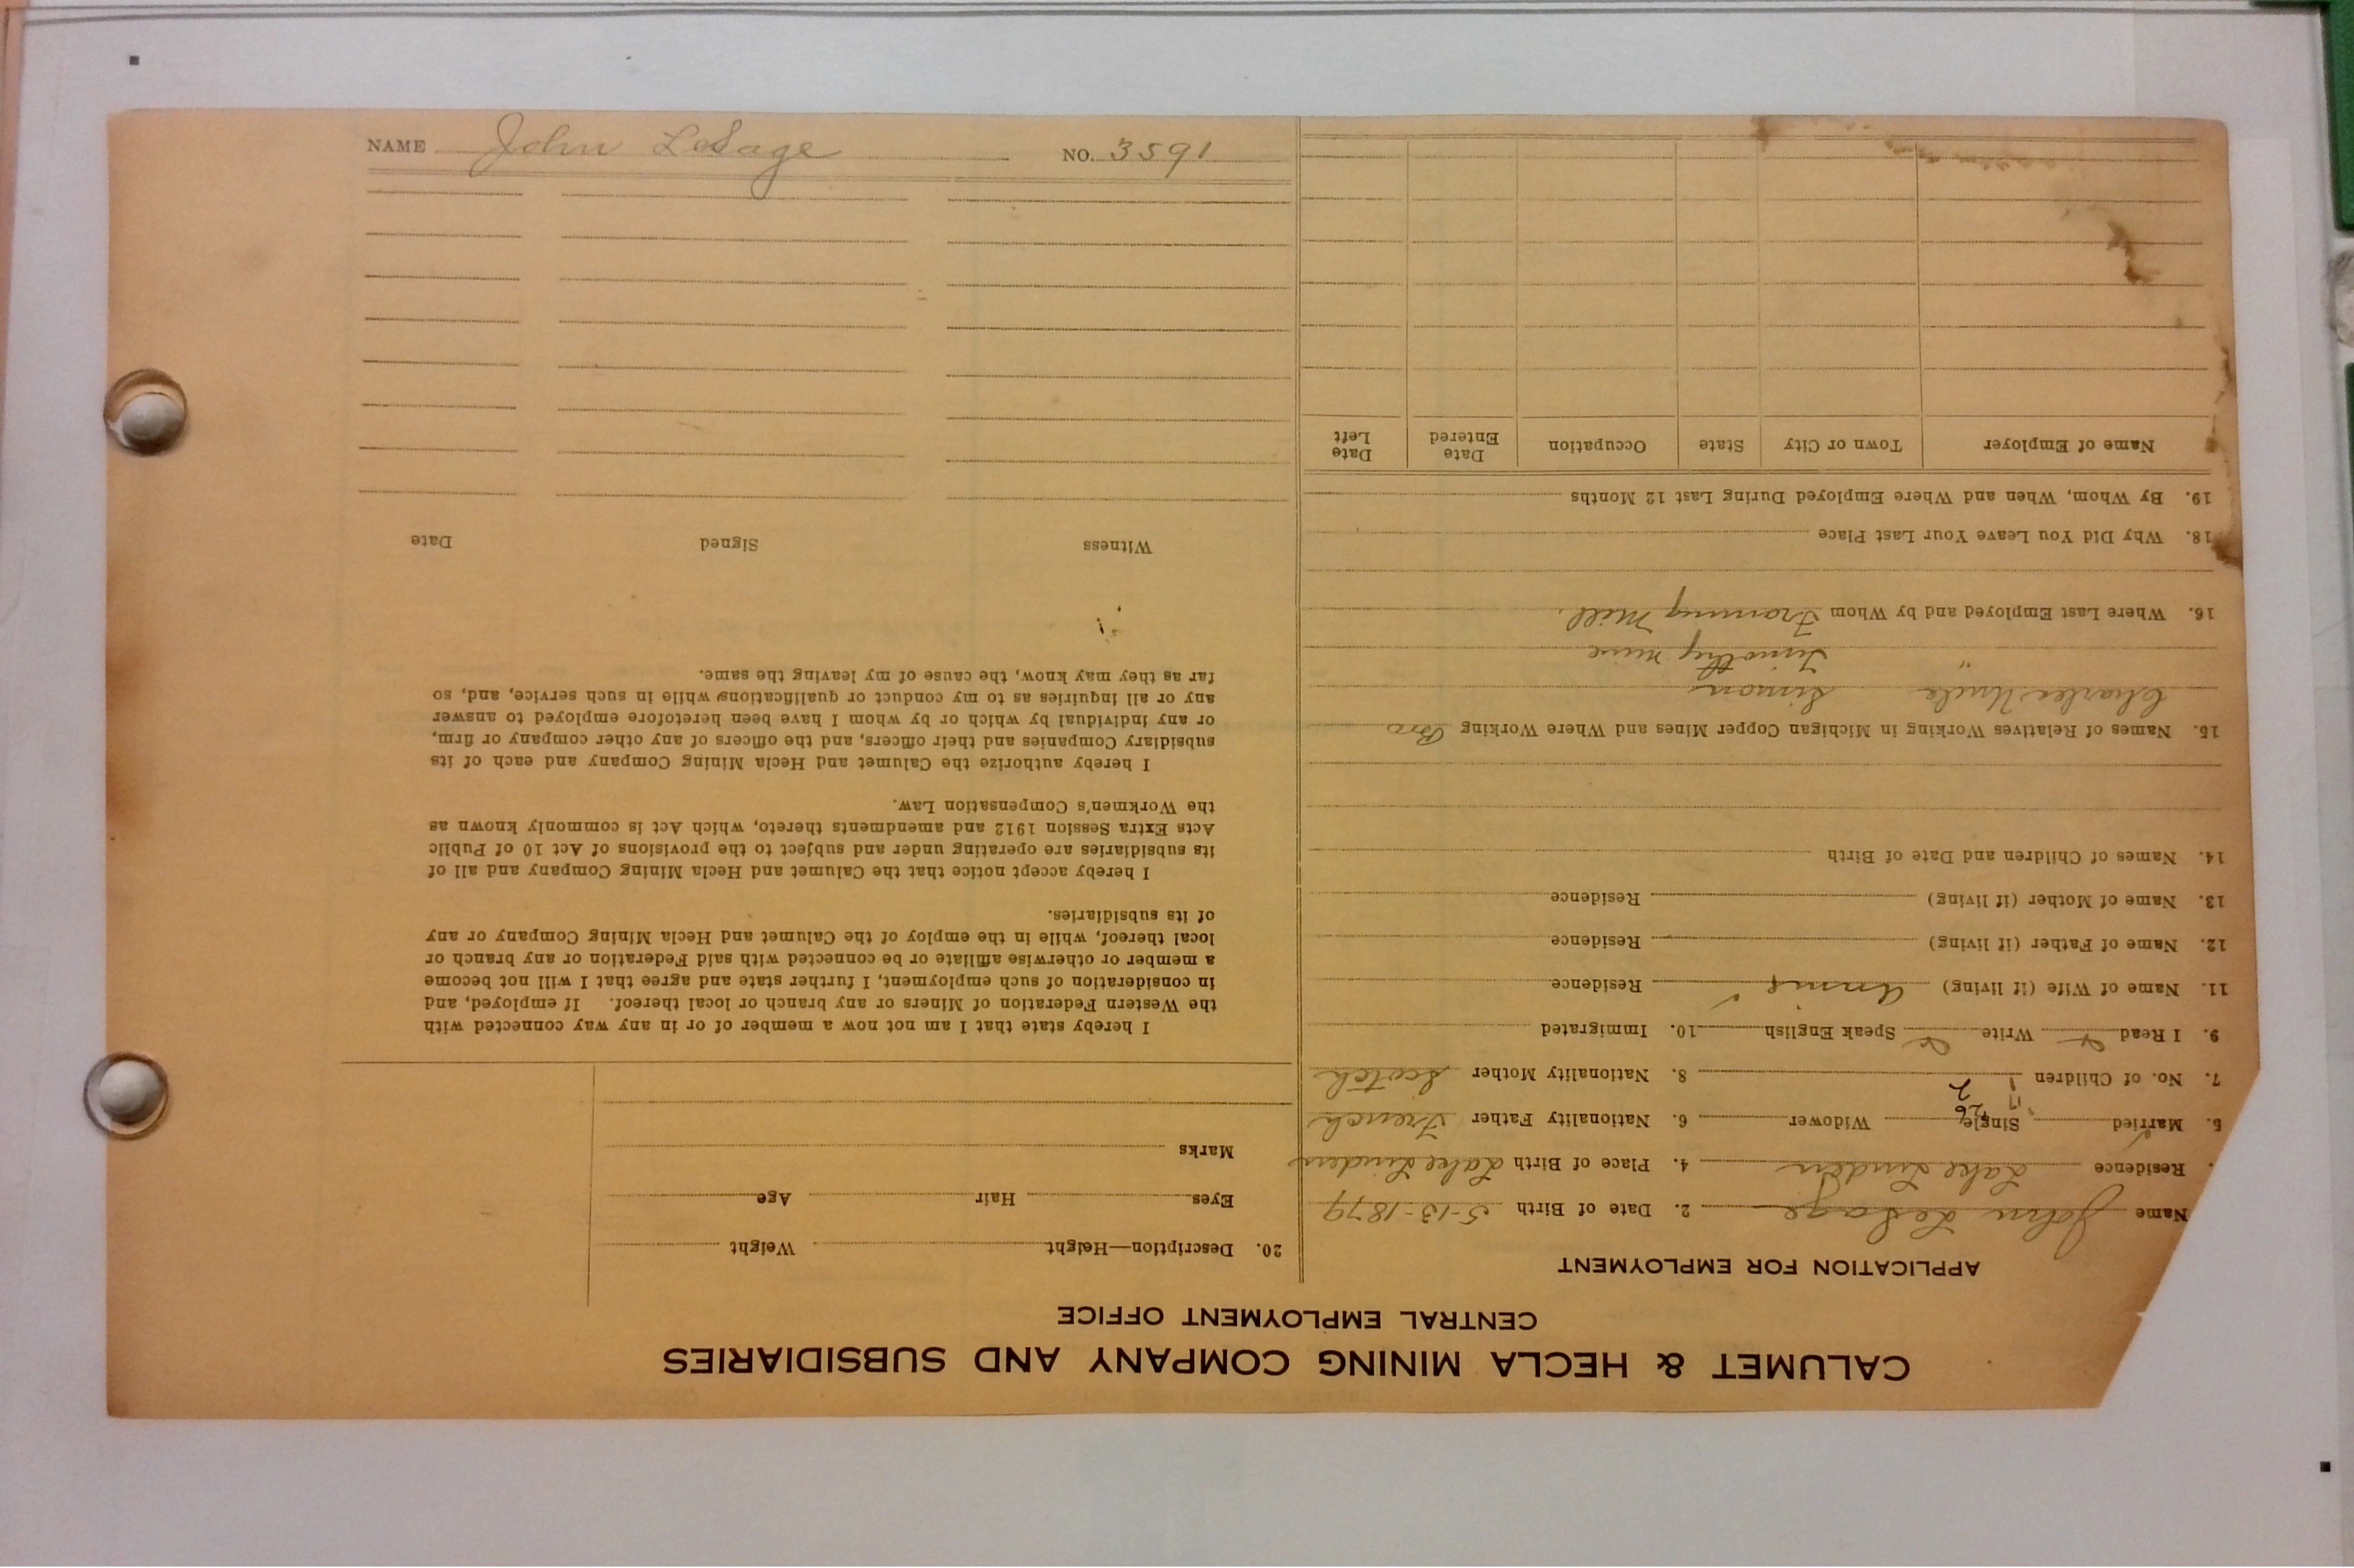 CALUMET & HECLA MINING COMPANY AND SUBSIDIARIES
CENTRAL EMPLOYMENT OFFICE
APPLICATION FOR EMPLOYMENT
Name John LeSage 2. Date of Birth 5-13-1879
. Residence Lake Linden 4. Place of Birth Lake Linden
5. Married Single Widower 6. Nationality Father French
7. No. of Children 8. Nationality Mother Scotch
9. I Read Write Speak English 10. Immigrated
11. Name of Wife (if living) Annie Residence
12. Name of Father (if living) Residence
13. Name of Mother (if living) Residence
14. Names of Children and Date of Birth
15. Names of Relatives Working in Michigan Copper Mines and Where Working Bro
Charles Uncle " Simon
Timothy mine
16. Where Last Employed and by Whom Mill.
18. Why Did You Leave Your Last Place
19. By Whom, When and Where Employed During Last 12 Months
Name of Employer Town or City State Occupation Date Entered Date Left
20. Description—Height Weight
Eyes Hair Age
Marks
I hereby state that I am not now a member of or in any way connected with
the Western Federation of Miners or any branch or local thereof. If employed, and
in consideration of such employment, I further state and agree that I will not become
a member or otherwise affiliate or be connected with said Federation or any branch or
local thereof, while in the employ of the Calumet and Hecla Mining Company or any
of its subsidiaries.
I hereby accept notice that the Calumet and Hecla Mining Company and all of
its subsidiaries are operating under and subject to the provisions of Act 10 of Public
Acts Extra Session 1912 and amendments thereto, which Act is commonly known as
the Workmen's Compensation Law.
I hereby authorize the Calumet and Hecla Mining Company and each of its
subsidiary Companies and their officers, and the officers of any other company or firm,
or any individual by which or by whom I have been heretofore employed to answer
any or all inquiries as to my conduct or qualifications while in such service, and, so
far as they may know, the cause of my leaving the same.
Witness Signed Date
NAME John LeSage NO. 3591